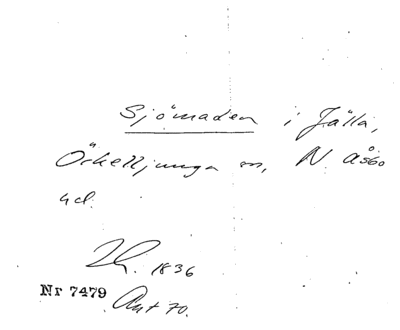 Sjömaden i Jälla,
Örkelljunga sn, N Åsbo
hd.
1836
Nr 7479 Akt 70.